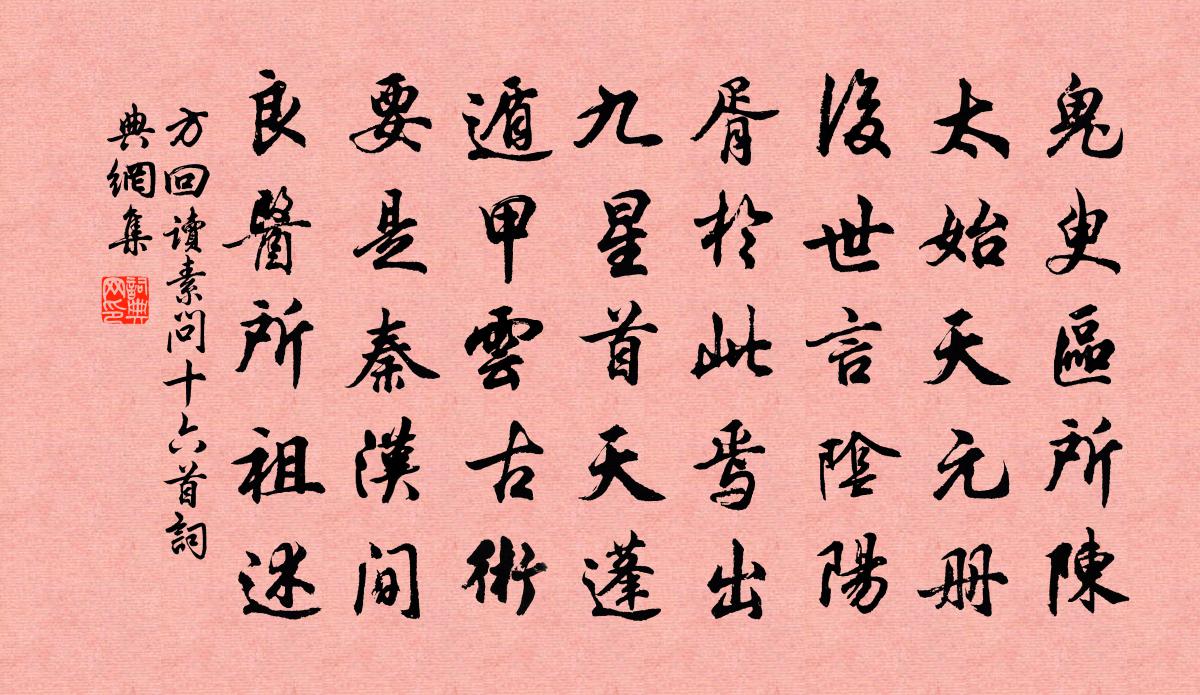 鬼臾區所陳
太始天元册
後世言陰陽
胥於此焉出
九星首天蓬
遁甲雲古術
要是秦漢間
良醫所祖述
方回讀素問十六首詞
典網集
詞典
网印